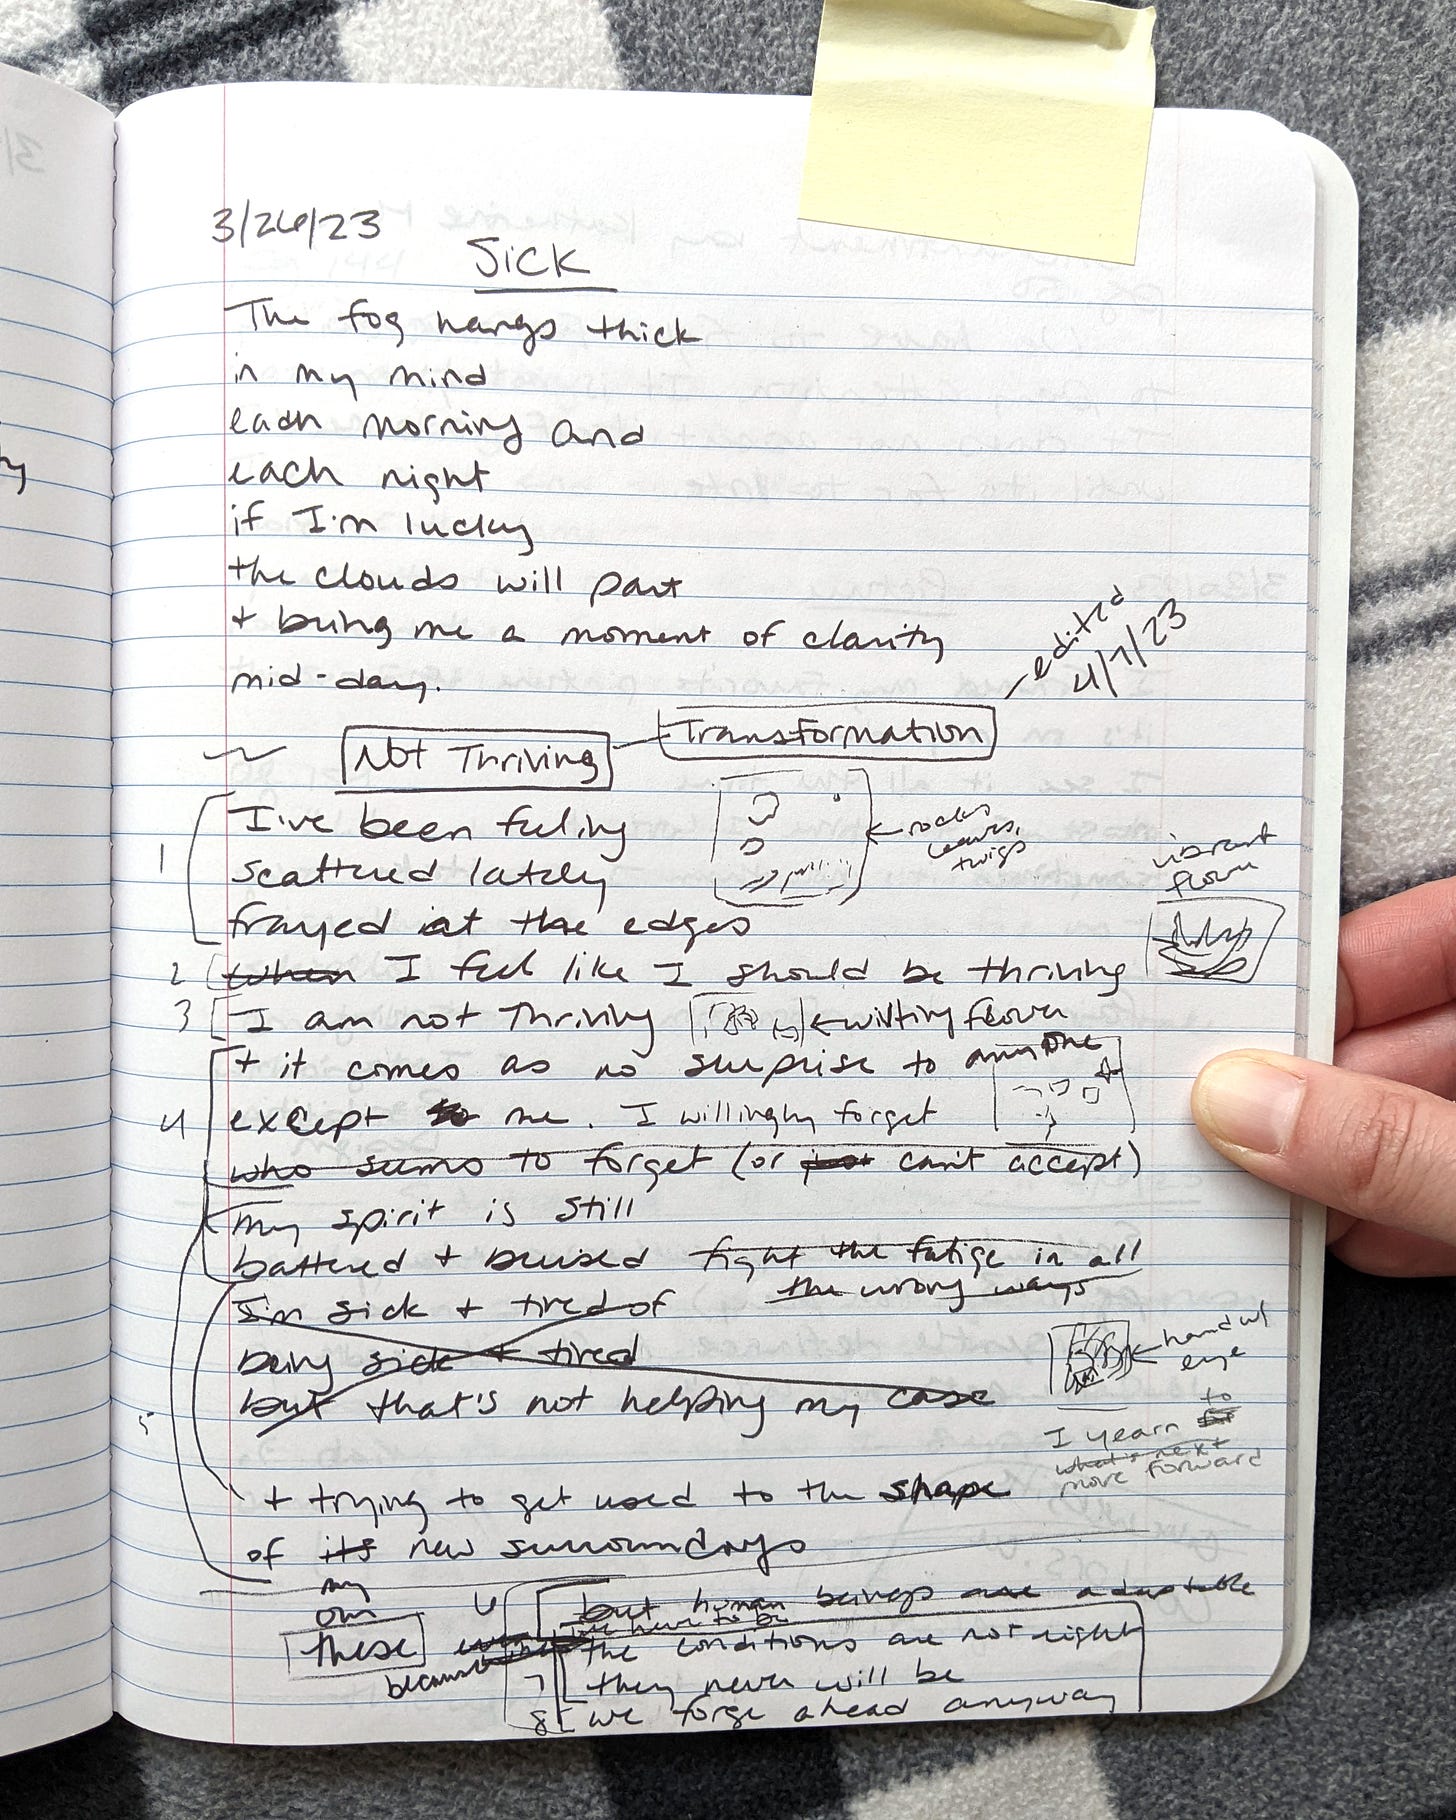 3/26/23
Sick
The fog hangs thick
in my mind
each morning and
each night
if I'm lucky
the clouds will part
+ bring me a moment of clarity
mid-day.
edited
4/7/23
Not Thriving
Transformation
1
I've been feeling
scattered lately
frayed at the edges
rocks
leaves,
twigs
vibrant
flower
2 when I feel like I should be thriving
3 I am not thriving
wilting flower
4
+ it comes as no surprise to anyone
except to me. I willingly forget
who seems to forget (or just can't accept)
my spirit is still
battered + bruised fight the fatige in all
the wrong ways
5
I'm sick + tired of
being sick + tired
but that's not helping my case
hand w/
eye
I yearn to
what's next
move forward
+ trying to get used to the shape
of its new surroundings
my
own
these
because
6
but human beings are adaptable
I've here to be
the conditions are not right
7 they never will be
8 we forge ahead anyway